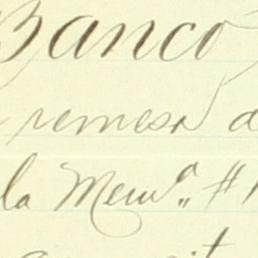 Banco
remesa d
la Mem.ª #1